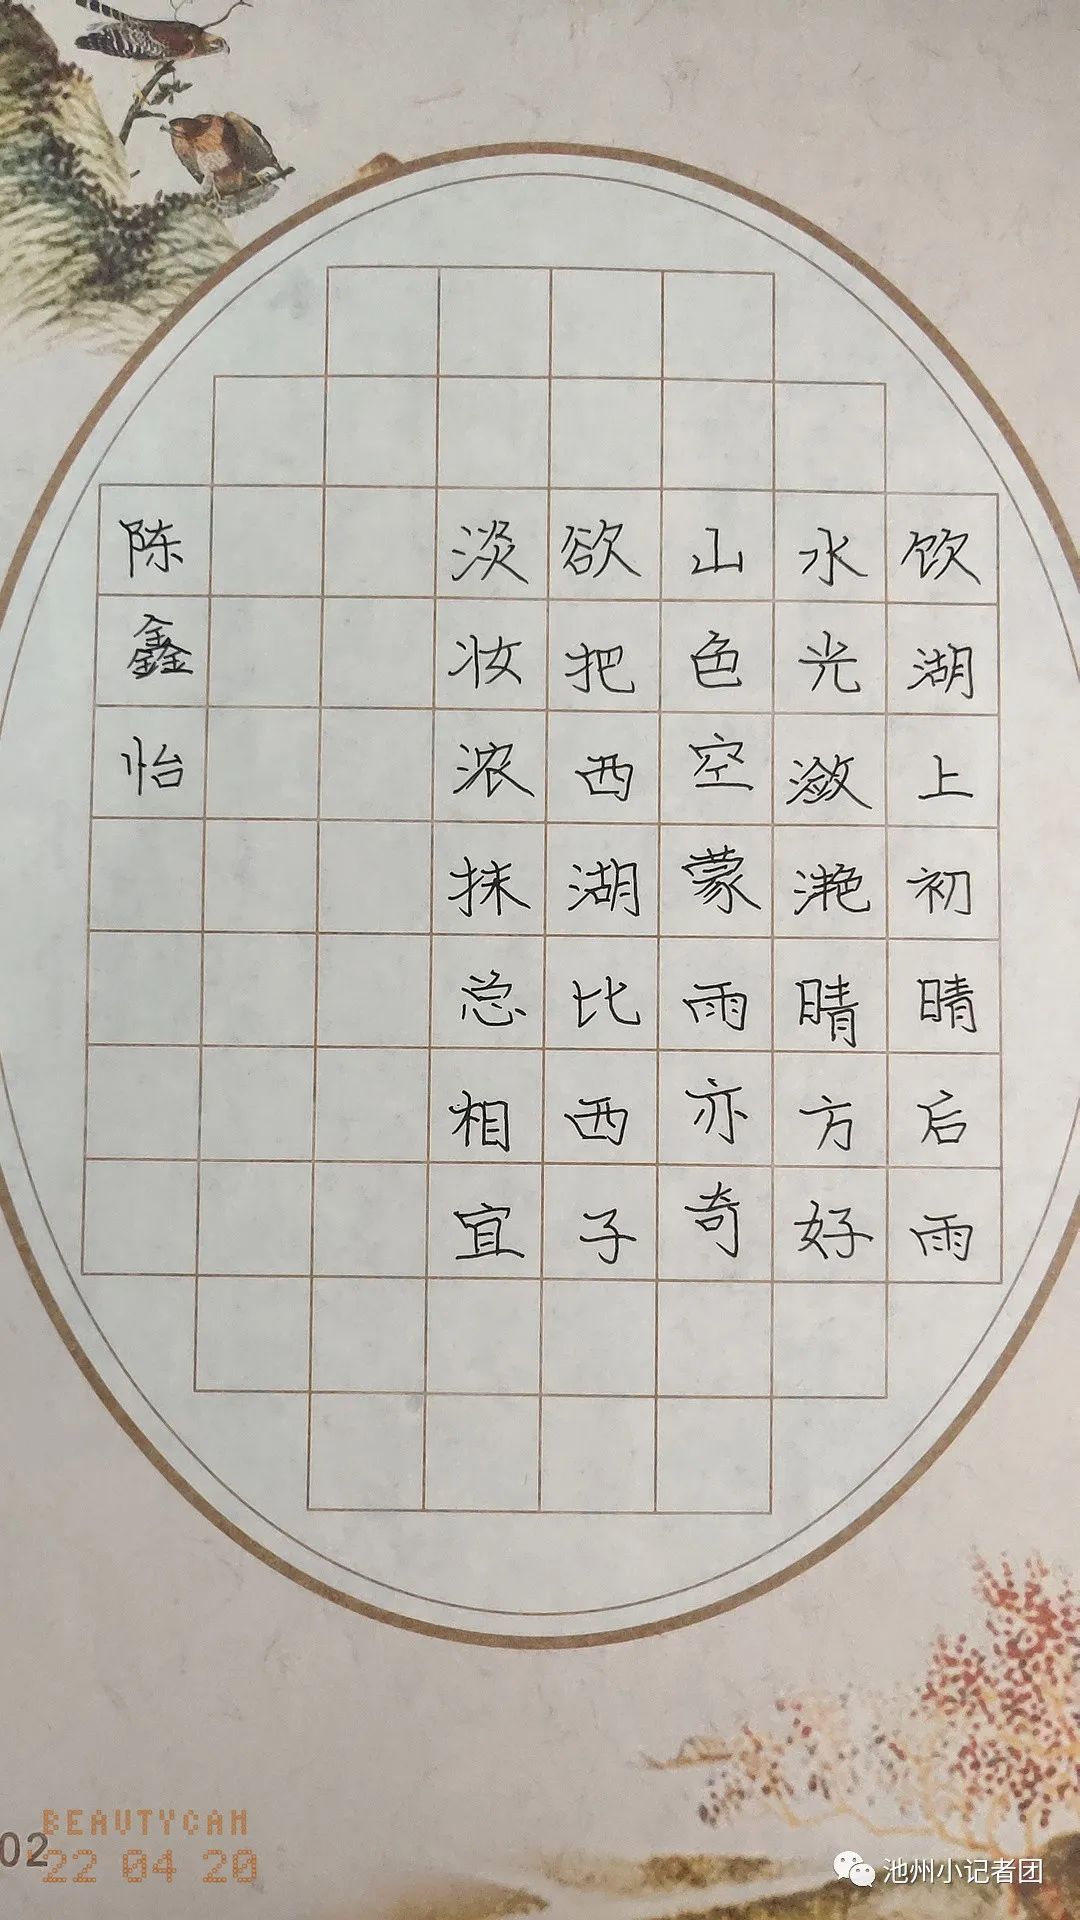 饮湖上初晴后雨
水光潋滟晴方好
山色空蒙雨亦奇
欲把西湖比西子
淡妆浓抹总相宜
陈鑫怡
BEAUTYCAM
02
22 04 20
池州小记者团